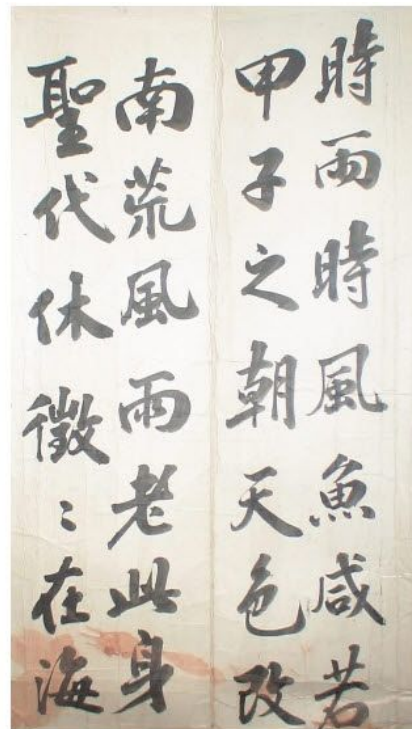 時雨時風魚咸若
甲子之朝天色改
南荒風雨老此身
聖代休徵〻在海